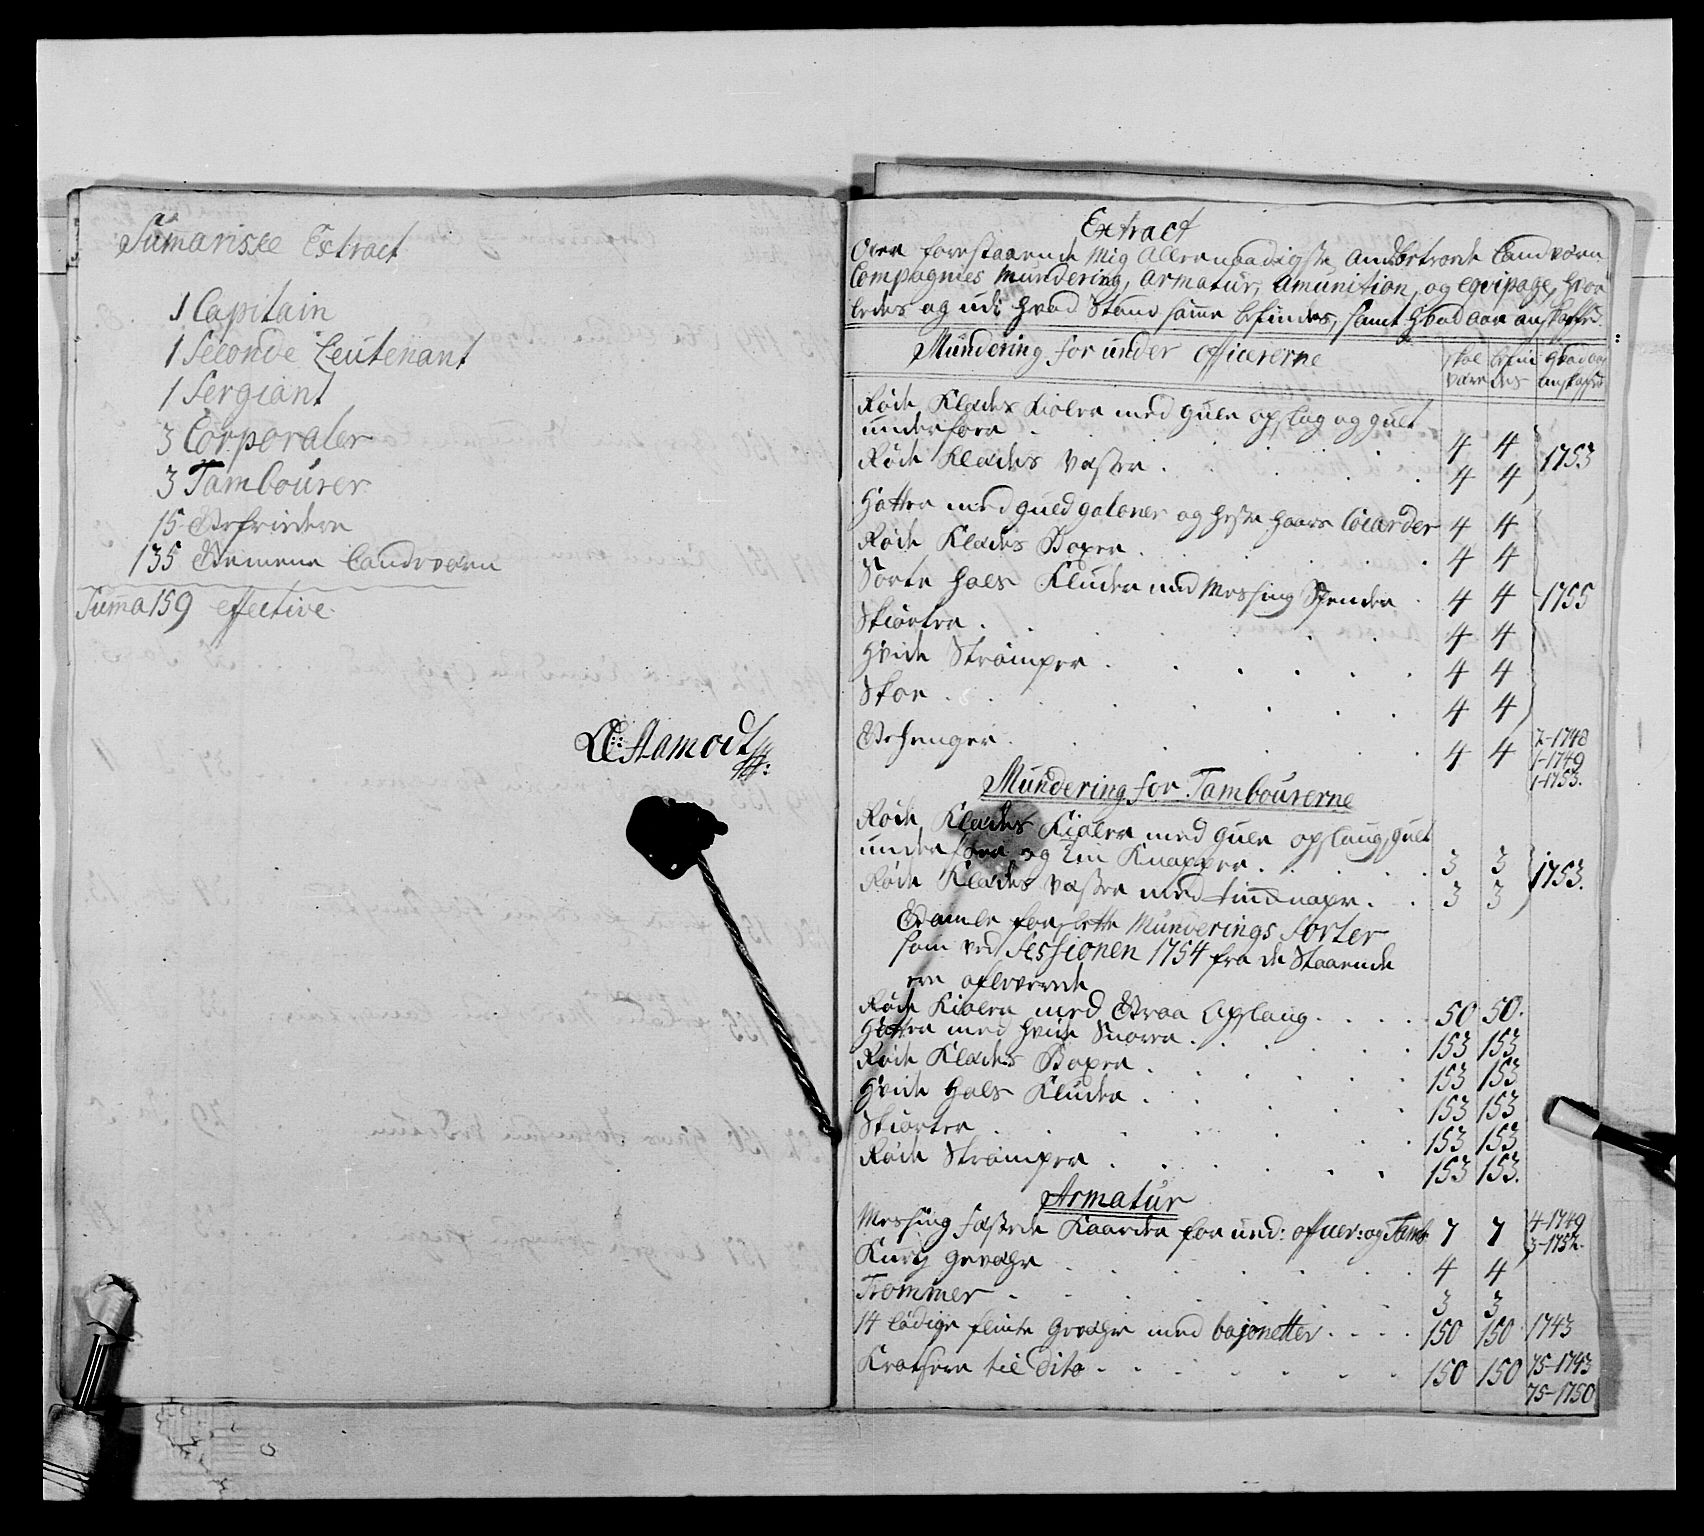 Sumariske Extract
1 Capitain
1 Seconde Leutenant
1 Sergiant
3 Corporaler
3 Tambourer
15 Befriedere
135 Gemene Landværn
Suma 159 effective
Stamodt
Extract
Over forestaaende Mig Allernaadigste Andbetroede Landværn
Compagnies Mundering, Armatur, Amunition, og Eqvipage, hvor
ledes og udi hvad Stand samme befindes, samt hvad aar anskaffed.
Mundering for under officererne
skal være
befindes
hvad aar anskaffed
Røde Klædes Kioler med gule opslag og guelt
underfoer . 4 4
Røde Klædes Vester . 4 4 1753
Hatter med guld galoner og heste haars Coiarder 4 4
Røde Klædes Boxer . 4 4
Sorte Hals Kluder med Messing Spender . 4 4 1755
Skiorter . 4 4
Hvide Strømper . 4 4
Skoe . 4 4
Gehenger . 4 4 2-1748
1-1749
1-1753.
Mundering for Tambourerne
Røde Klædes Kioler med gule opslaug, guelt
underfoer og Tin Knapper . 3 3
Røde Klædes Vester med tinknaper . 3 3 1753.
Gamle forslette Munderings Sorter
som ved Sessionen 1754 fra de Staaende
ere afleverede
Røde Kioler med Graa Opslaug . 50 50.
Hatter med hvide Snorer . 153 153
Røde Klædes Boxer . 153 153
Hvide Hals Kluder . 153 153
Skiorter . 153 153
Røde Strømper . 153 153.
Armatur
Messing fæstede Kaarder for und: officer: og Tamb: 7 7 4-1749
3-1752.
Kurtz gevæhr . 4 4
Trommer . 3 3
14 lødige flinte Gevæhr med bajonetter . 150 150 1743
Kratsere til Dito . 150 150 75-1743
75-1750